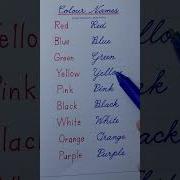 Colour Names
Red Red
Blue Blue
Green Green
Yellow Yellow
Pink Pink
Black Black
White White
Orange Orange
Purple Purple